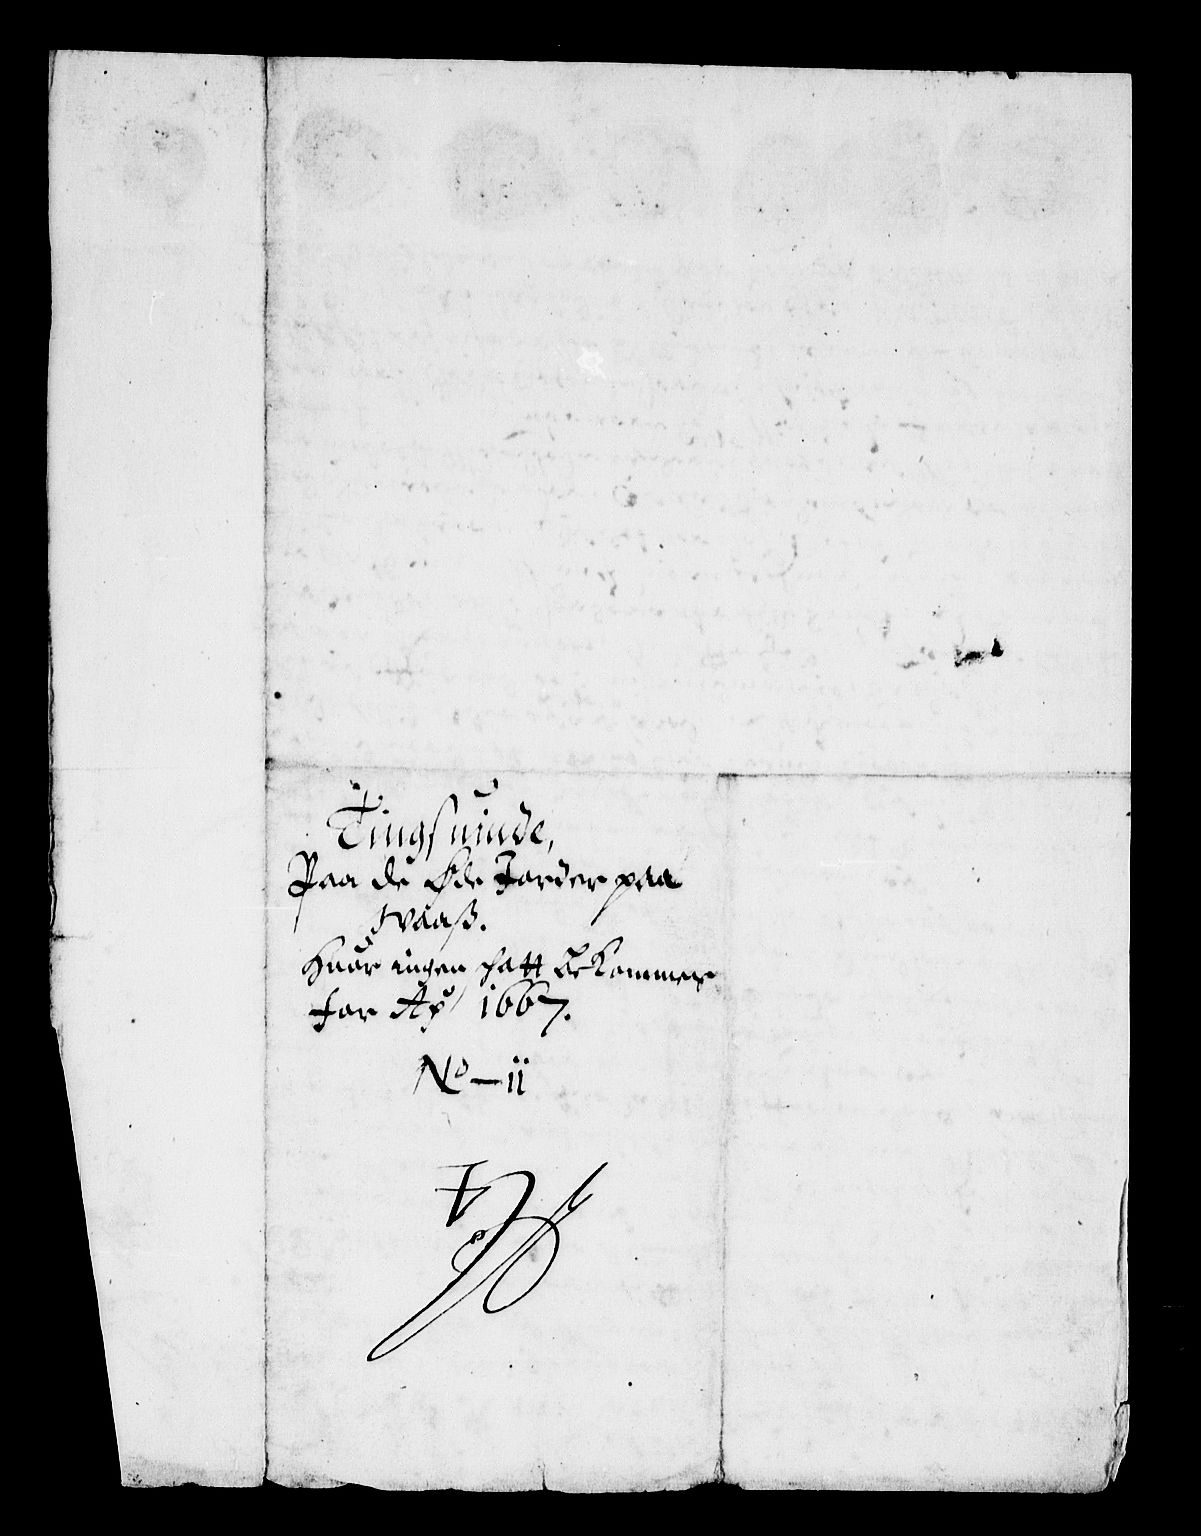 Tingsuinde,
Paa de Øde Jorder paa
Waasß.
Huor ingen skatt Bekommer
for A° 1667.
N° — ii